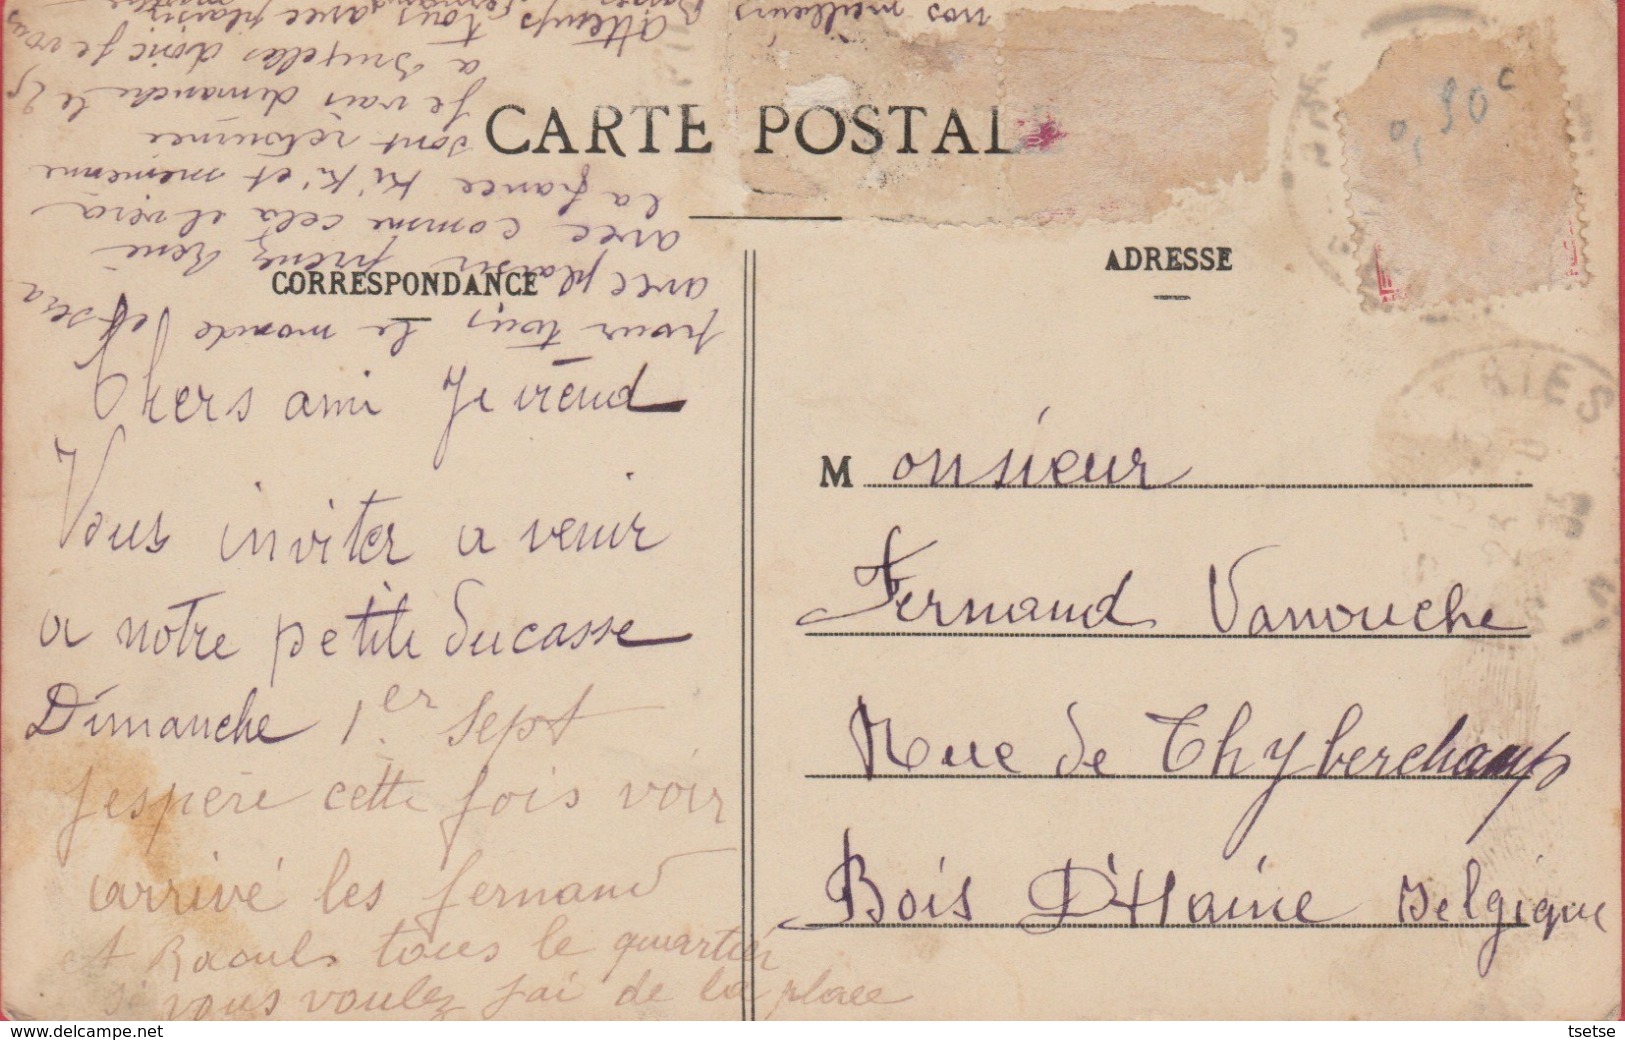 CARTE POSTAL
CORRESPONDANCE
ADRESSE
0,90c
Chers ami Je viend
Vous inviter a venir
a notre petite Ducasse
Dimanche 1er Sept
J'espere cette fois voir
arrivé les fernand
et Raouls tous le quartier
si vous voulez j'ai de la place
pour tous le monde et sera
avec plaisir prenez René
avec comme cela il vera
la france Ki'Ki' et
sont retournée
Je vais dimanche le 25
a Bruxelles donc je vous
attends tous avec plaisir
nos meilleurs
Monsieur
Fernand Vanouche
Rue de Thyberchamp
Bois D'Haine Belgique
RIES
tsetse
www.delcampe.net